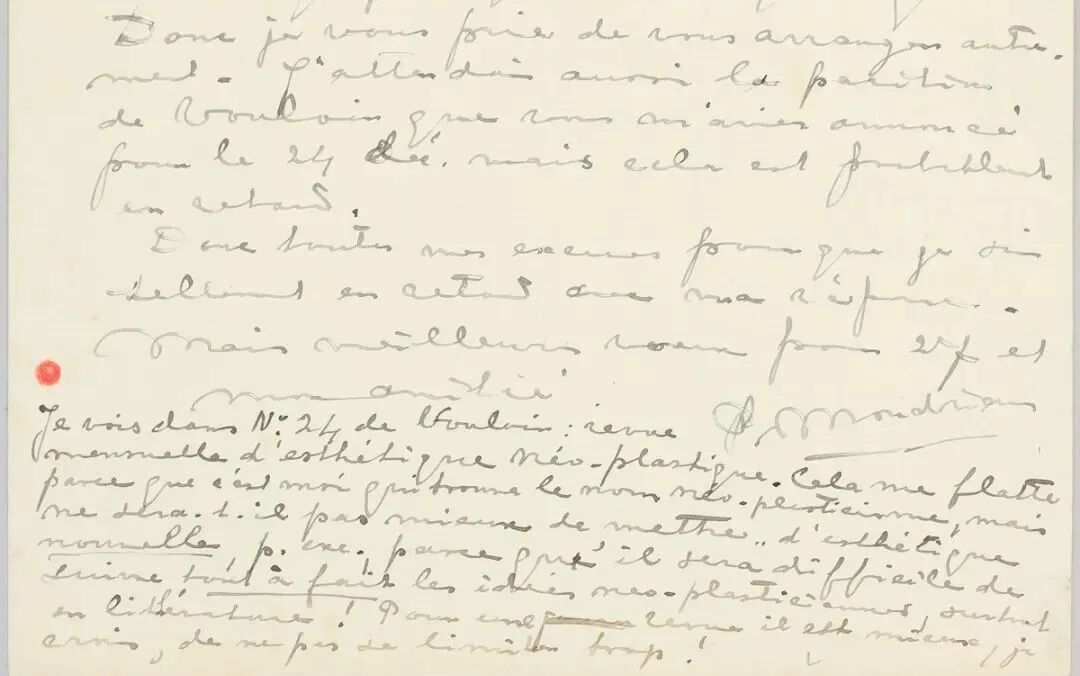 Donc je vous prie de vous arranger autre-
ment. J'attendais aussi la parution
de Vouloir que vous m'aviez annoncé
pour le 24 déc. mais cela est probablement
en retard.
Donc toutes mes excuses pour que je suis
tellement en retard avec ma réponse.
Mais meilleurs voeux pour 27 et
mon amitié
P. Mondrian
Je vois dans No. 24 de Vouloir: revue
mensuelle d'esthétique néo-plastique. Cela me flatte
parce que c'est moi qui trouva le nom néo-plasticisme, mais
ne sera-t-il pas mieux de mettre „d'esthétique
nouvelle p. ex. parce qu'il sera difficile de
suivre tout à fait les idées néo-plasticiennes, surtout
en littérature! Pour une revue il est mieux, je
crois, de ne pas se limiter trop!